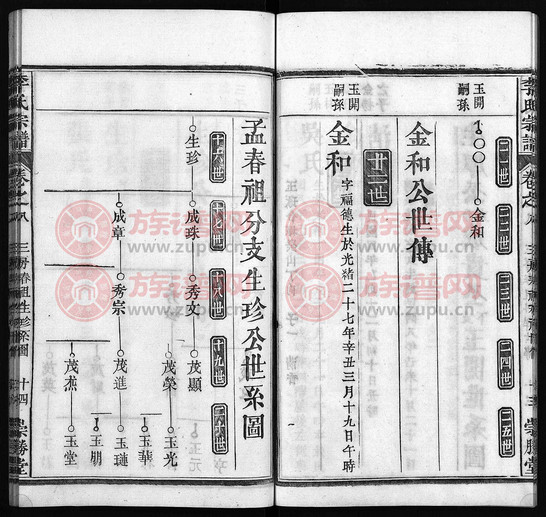 李氏宗譜
卷之九
崇勝堂
二一世
二二世
二三世
二四世
二五世
玉開
嗣孫
金和
金和公世傳
廿二世
玉開
嗣孫
金和
字福德生於光緒二十七年辛丑三月十九日午時
孟春祖分支生珍公世系圖
十六世
十七世
十八世
十九世
二十世
生珍
成珠
成章
秀文
秀宗
茂顯
茂榮
茂進
茂杰
玉光
玉華
玉璉
玉朋
玉堂
李氏宗譜
卷之八
三房春祖生珍系圖
十四
崇勝堂
族譜网
www.zupu.cn
族譜网
www.zupu.cn